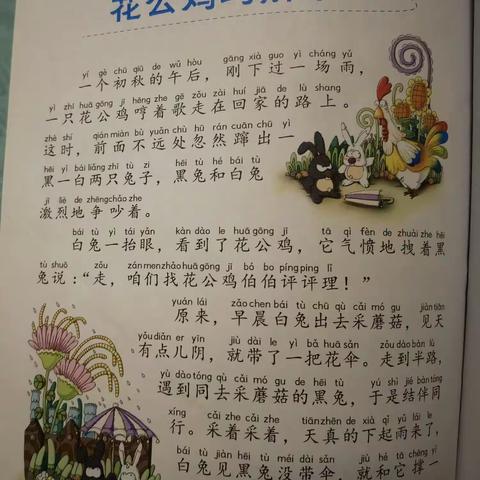 花公鸡的
yí gè chū qiū de wǔ hòu gāng xià guo yì cháng yǔ
一个初秋的午后，刚下过一场雨，
yì zhī huā gōng jī hēng zhe gē zǒu zài huí jiā de lù shang
一只花公鸡哼着歌走在回家的路上。
zhè shí qián miàn bù yuǎn chù hū rán cuān chū yì
这时，前面不远处忽然蹿出一
hēi yì bái liǎng zhī tù zi hēi tù hé bái tù
黑一白两只兔子，黑兔和白兔
jī liè de zhēng chǎo zhe
激烈地争吵着。
bái tù yì tái yǎn kàn dào le huā gōng jī tā qì fèn de zhuài zhe hēi
白兔一抬眼，看到了花公鸡，它气愤地拽着黑
tù shuō zǒu zán men zhǎo huā gōng jī bó bo píng ping lǐ
兔说：“走，咱们找花公鸡伯伯评评理！”
yuán lái zǎo chen bái tù chū qù cǎi mó gu jiàn tiān
原来，早晨白兔出去采蘑菇，见天
yǒu diǎnr yīn jiù dài le yì bǎ huā sǎn zǒu dào bàn lù
有点儿阴，就带了一把花伞。走到半路，
yù dào tóng qù cǎi mó gu de hēi tù yú shì jié bàn tóng
遇到同去采蘑菇的黑兔，于是结伴同
xíng cǎi zhe cǎi zhe tiān zhēn de xià qǐ yǔ lái le
行。采着采着，天真的下起雨来了，
bái tù jiàn hēi tù méi dài sǎn jiù hé tā chēng yì
白兔见黑兔没带伞，就和它撑一